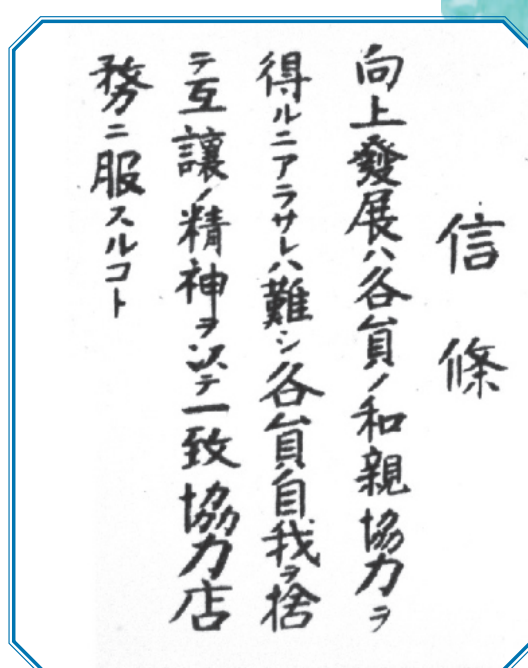 信條
向上發展ハ各員ノ和親協力ヲ
得ルニアラサレハ難シ各員自我ヲ捨
テ互讓ノ精神ヲ以テ一致協力店
務ニ服スルコト